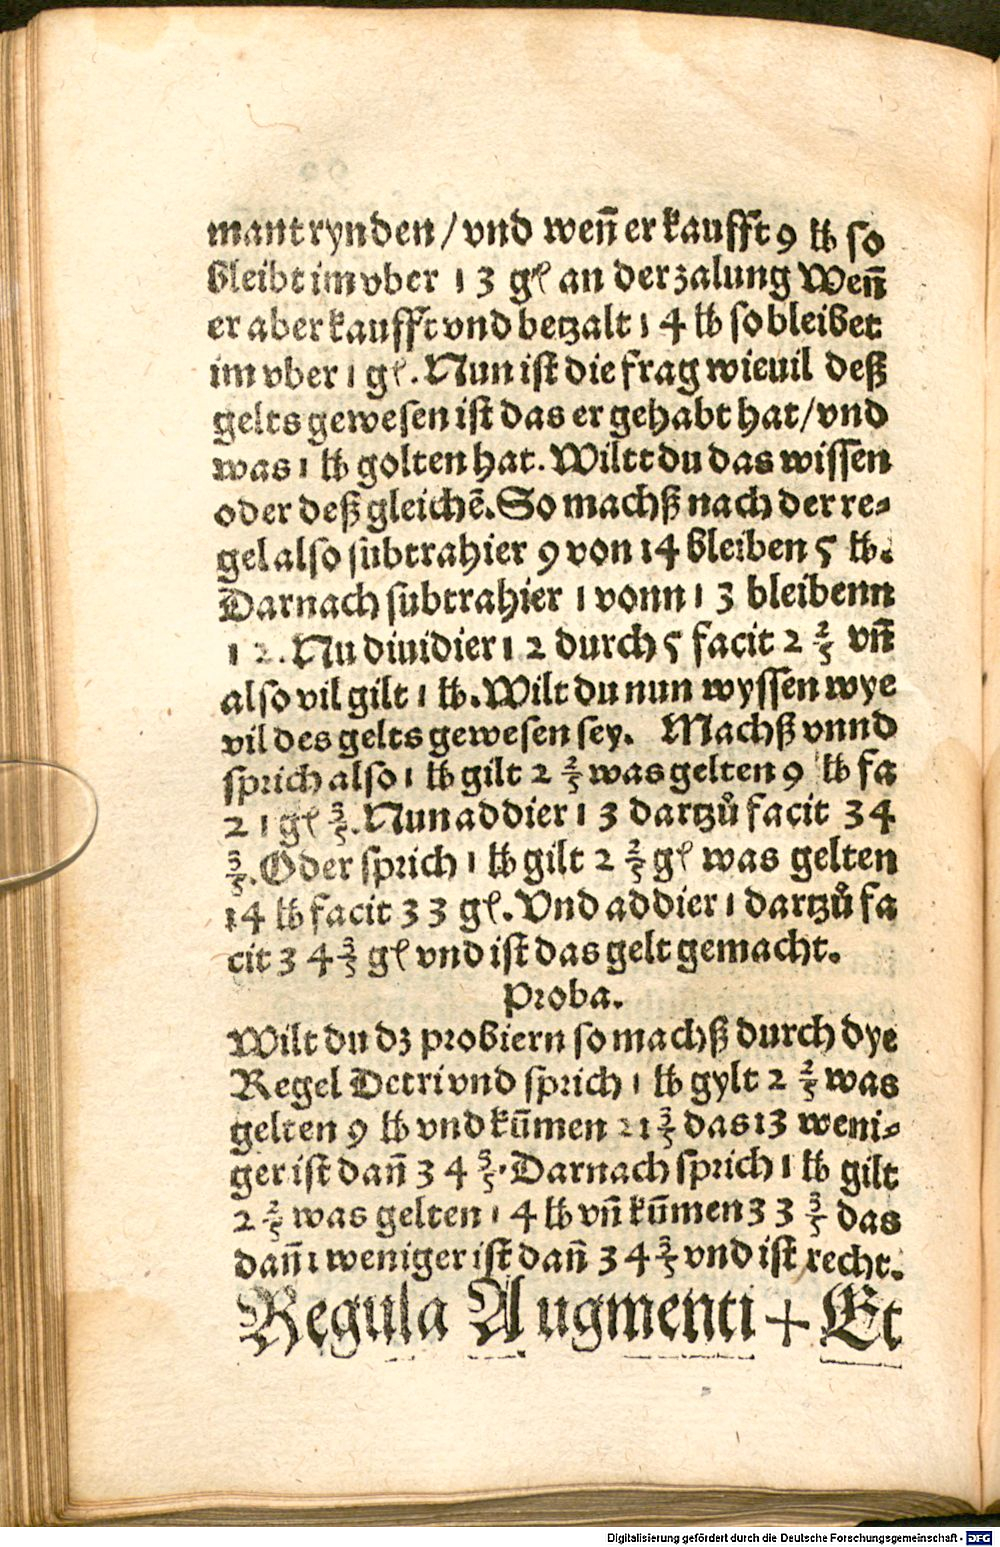 mant rynden / vnd weñ er kaufft 9 ℔ so
bleibt im vber 1 3 gl an der zalung Weñ
er aber kaufft vnd betzalt 1 4 ℔ so bleibet
im vber 1 gl. Nun ist die frag wieuil deß
gelts gewesen ist das er gehabt hat / vnd
was 1 ℔ golten hat. Wiltt du das wissen
oder deß gleichē. So machß nach der re-
gel also subtrahier 9 von 14 bleiben 5 ℔.
Darnach subtrahier 1 vonn 1 3 bleibenn
1 2. Nu diuidier 1 2 durch 5 facit 2 2/5 vñ
also vil gilt 1 ℔. Wilt du nun wyssen wye
vil des gelts gewesen sey. Machß vnnd
sprich also 1 ℔ gilt 2 2/5 was gelten 9 ℔ fa
2 1 gl 3/5. Nun addier 1 3 dartzů facit 3 4
3/5. Oder sprich 1 ℔ gilt 2 2/5 gl was gelten
14 ℔ facit 3 3 gl. Vnd addier 1 dartzů fa
cit 3 4 3/5 gl vnd ist das gelt gemacht.
Proba.
Wilt du dz probiern so machß durch dye
Regel Detri vnd sprich 1 ℔ gylt 2 2/5 was
gelten 9 ℔ vnd kūmen 21 3/5 das 13 weni-
ger ist dañ 3 4 3/5. Darnach sprich 1 ℔ gilt
2 2/5 was gelten 1 4 ℔ vñ kūmen 3 3 3/5 das
dañ 1 weniger ist dañ 3 4 3/5 vnd ist recht.
Regula Augmenti + Et
Digitalisierung gefördert durch die Deutsche Forschungsgemeinschaft - DFG